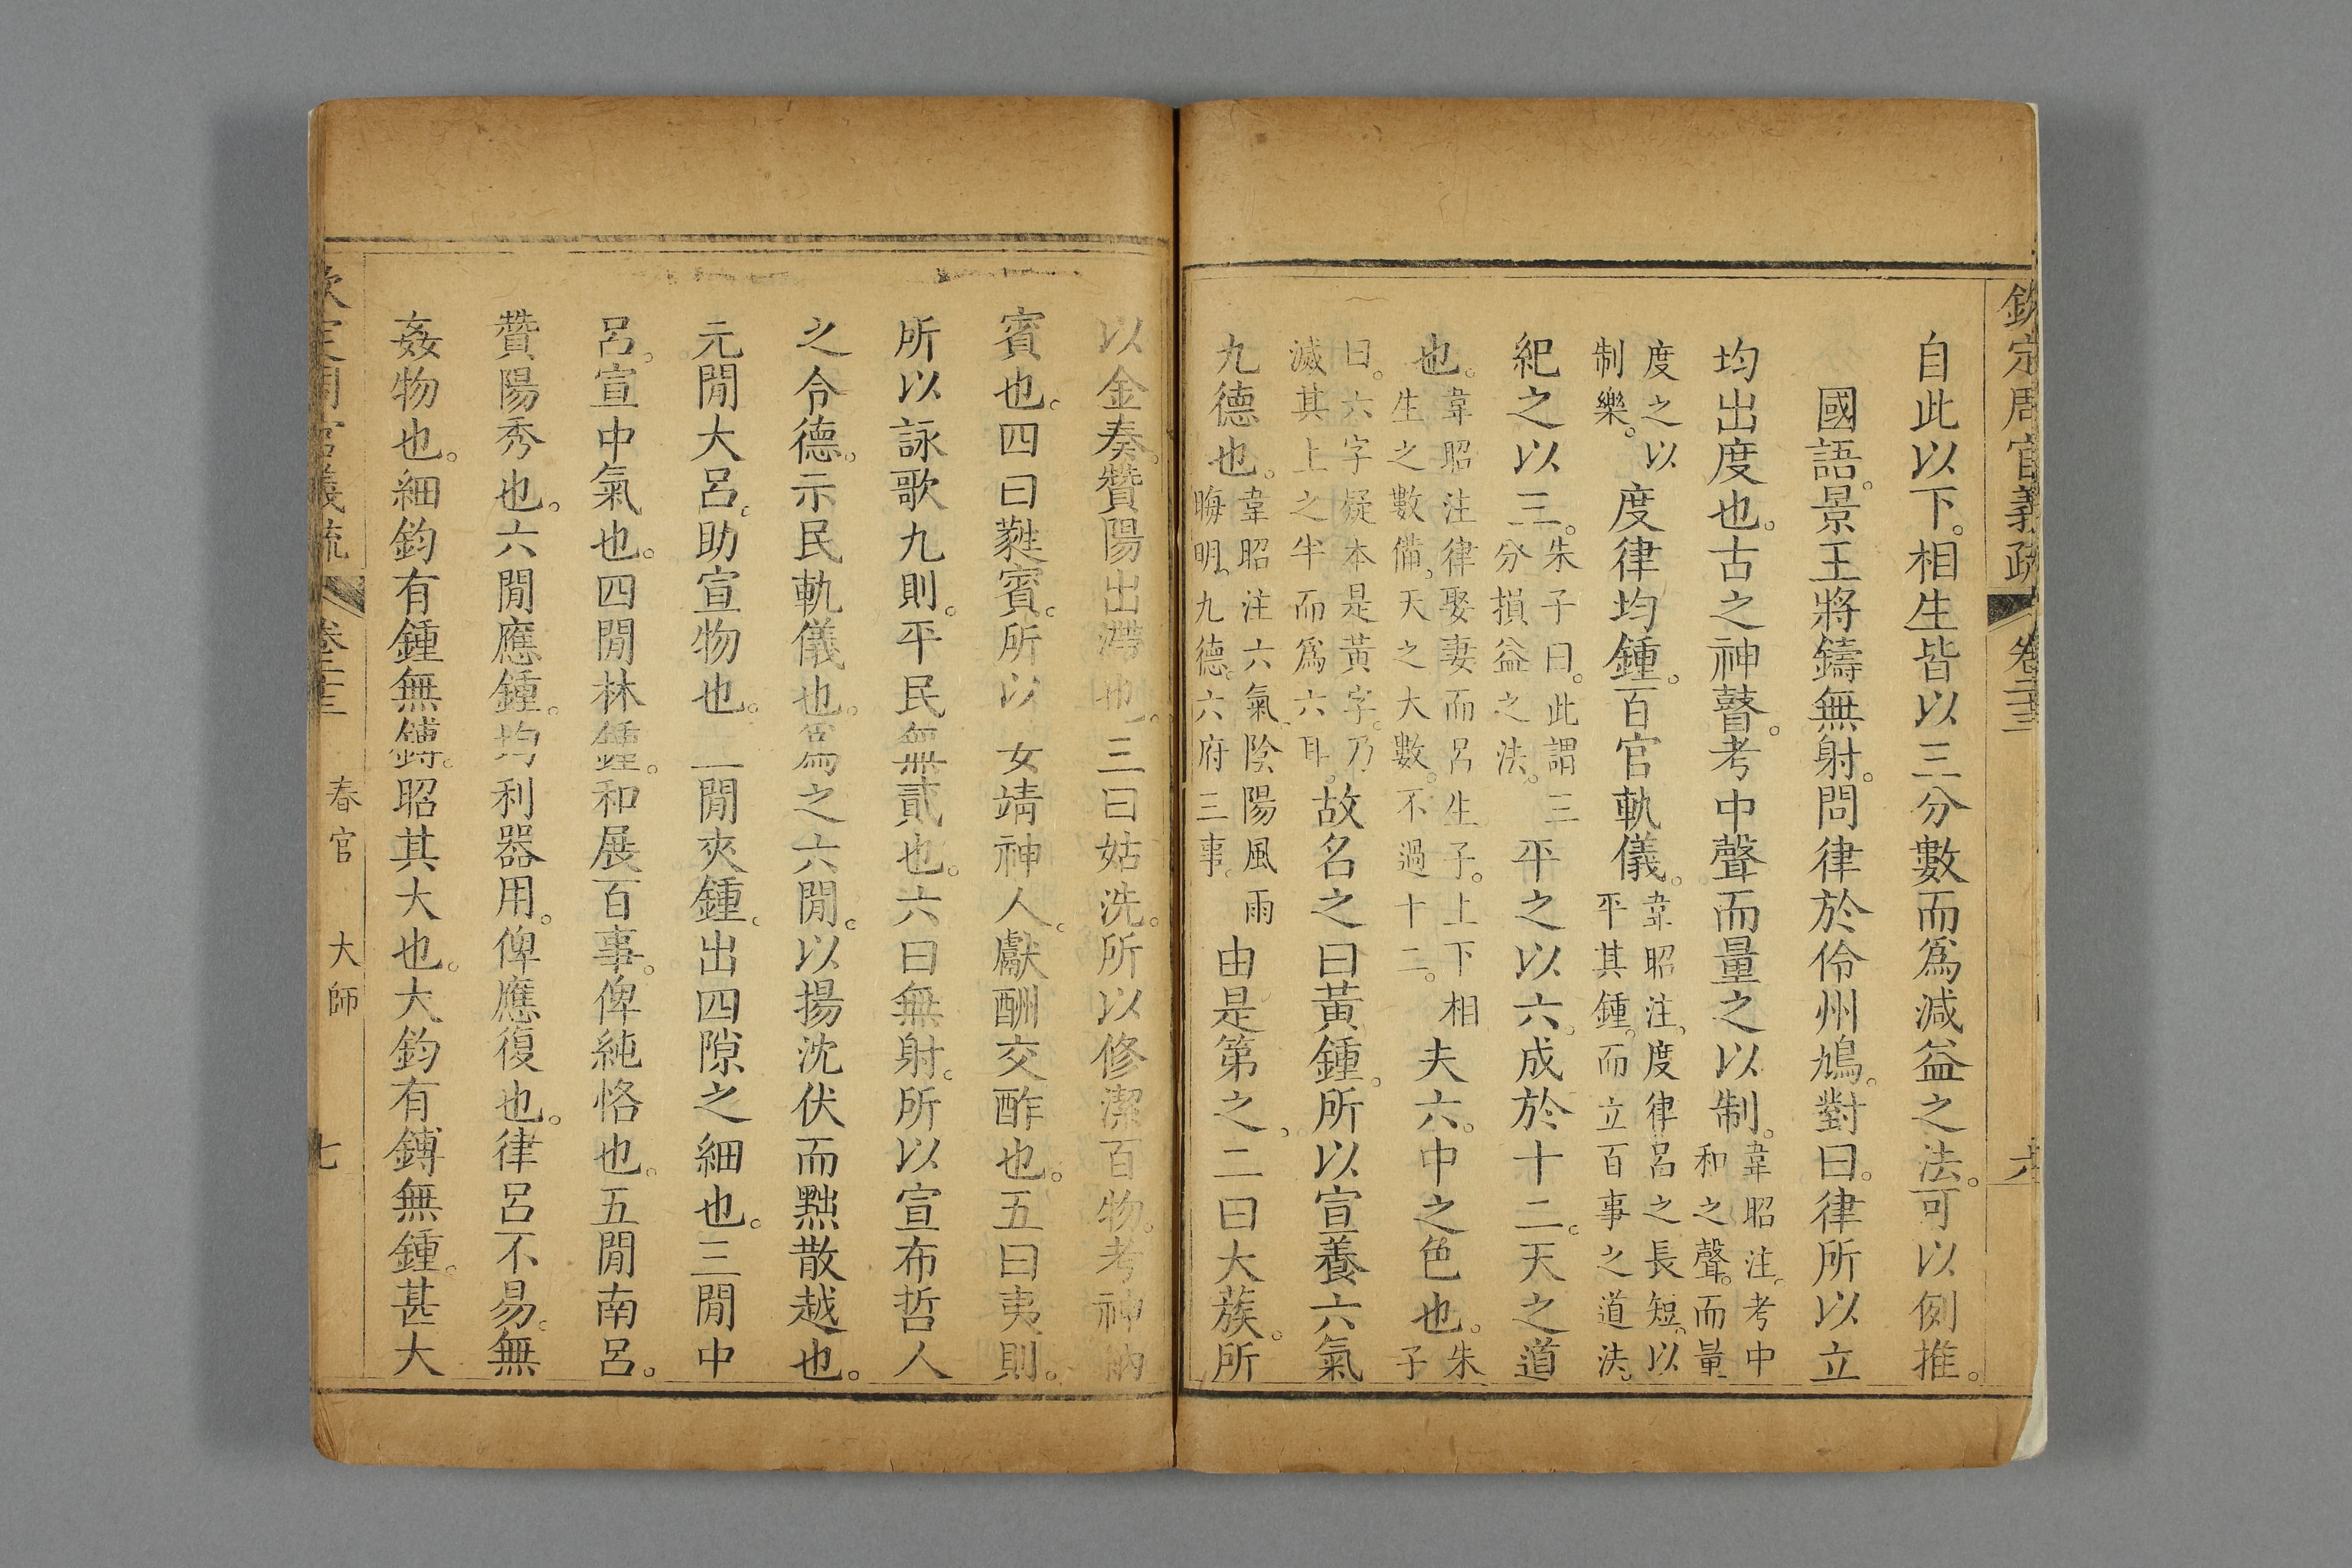 欽定周官義疏 卷二十三 六
自此以下。相生皆以三分數而爲減益之法。可以例推。
國語。景王將鑄無射。問律於伶州鳩。對曰。律所以立
均出度也。古之神瞽。考中聲而量之以制。韋昭注。考中和之聲。而量
度之以制樂。度律均鍾。百官軌儀。韋昭注。度律呂之長短。以平其鍾。而立百事之道法。
紀之以三。朱子曰。此謂三分損益之法。平之以六。成於十二。天之道
也。韋昭注律娶妻而呂生子。上下相生之數備。天之大數。不過十二。夫六。中之色也。朱子
曰。六字疑本是黃字。乃滅其上之半而爲六耳。故名之曰黃鍾。所以宣養六氣
九德也。韋昭注六氣。陰陽風雨晦明。九德。六府三事。由是第之。二曰大蔟。所
以金奏。贊陽出滯也。三曰姑洗。所以修潔百物。考神納
賓也。四曰蕤賓。所以女靖神人。獻酬交酢也。五曰夷則。
所以詠歌九則。平民無貳也。六曰無射。所以宣布哲人
之令德。示民軌儀也。爲之六閒。以揚沈伏而黜散越也。
元閒大呂。助宣物也。二閒夾鍾。出四隙之細也。三閒中
呂。宣中氣也。四閒林鍾。和展百事。俾純恪也。五閒南呂。
贊陽秀也。六閒應鍾。均利器用。俾應復也。律呂不易。無
姦物也。細鈞有鍾無鎛。昭其大也。大鈞有鎛無鍾。甚大
欽定周官義疏 卷二十三 春官 大師 七